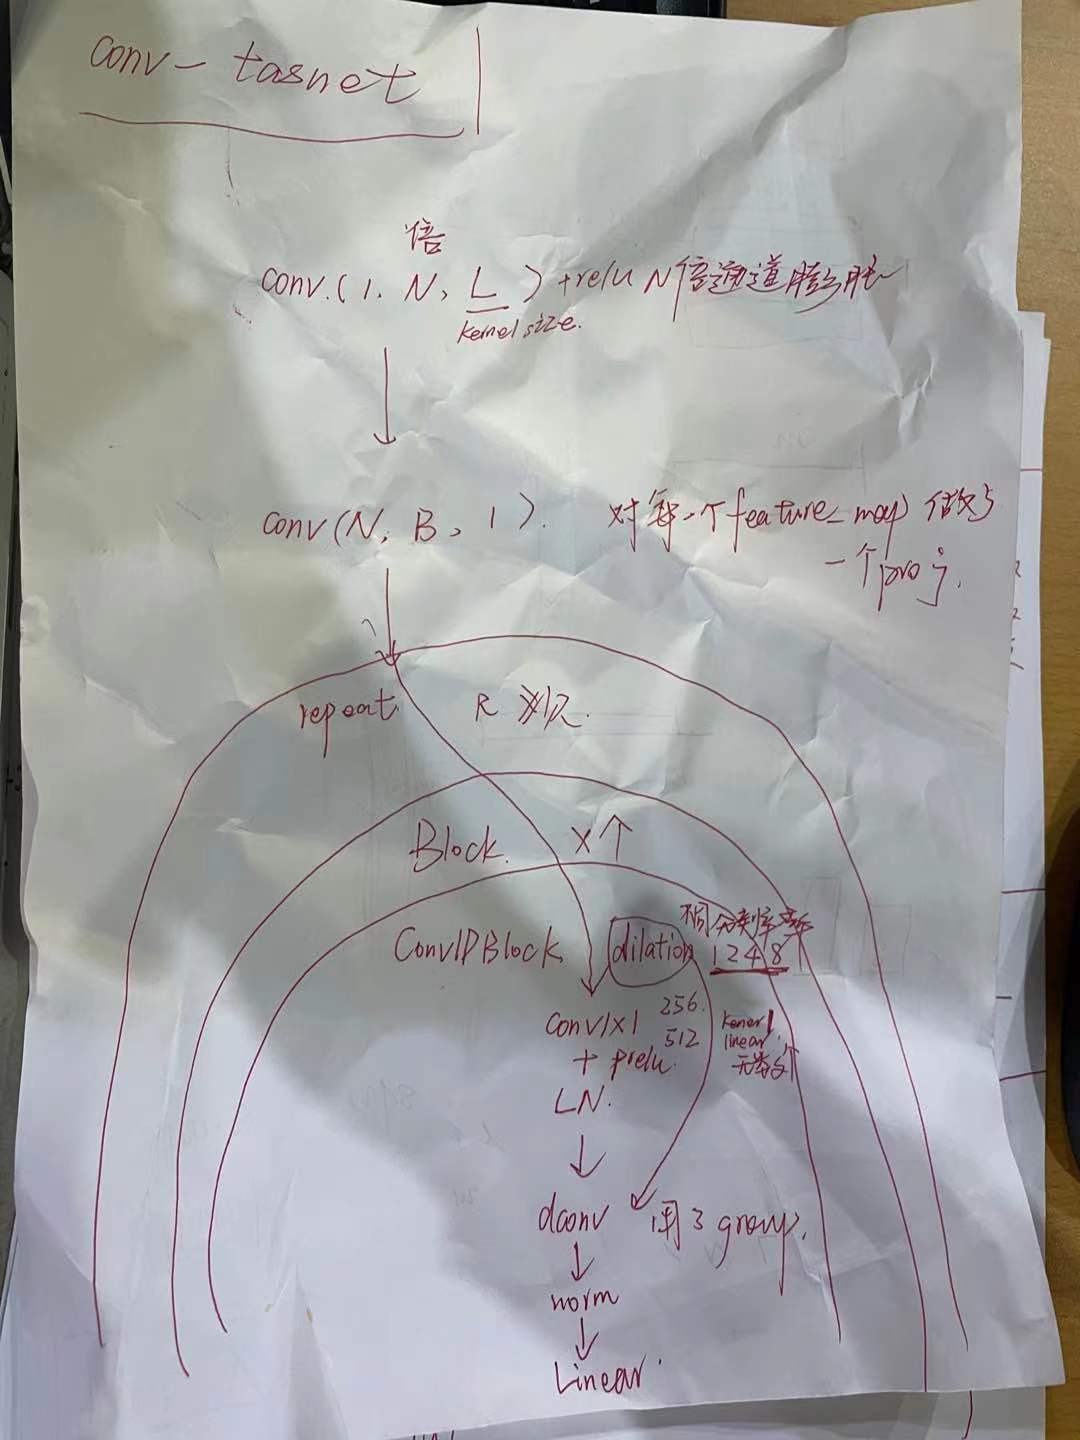 conv-tasnet
倍
conv.(1, N, L)+relu N倍通道膨胀
kernel size.
conv(N, B, 1). 对每一个feature_map做了
一个proj.
repeat R 次.
Block. X个
不同分辨率
Conv1DBlock dilation 1248
conv1x1 256.
512
+ prelu.
linear.
LN.
dconv 用了group.
norm
Linear.